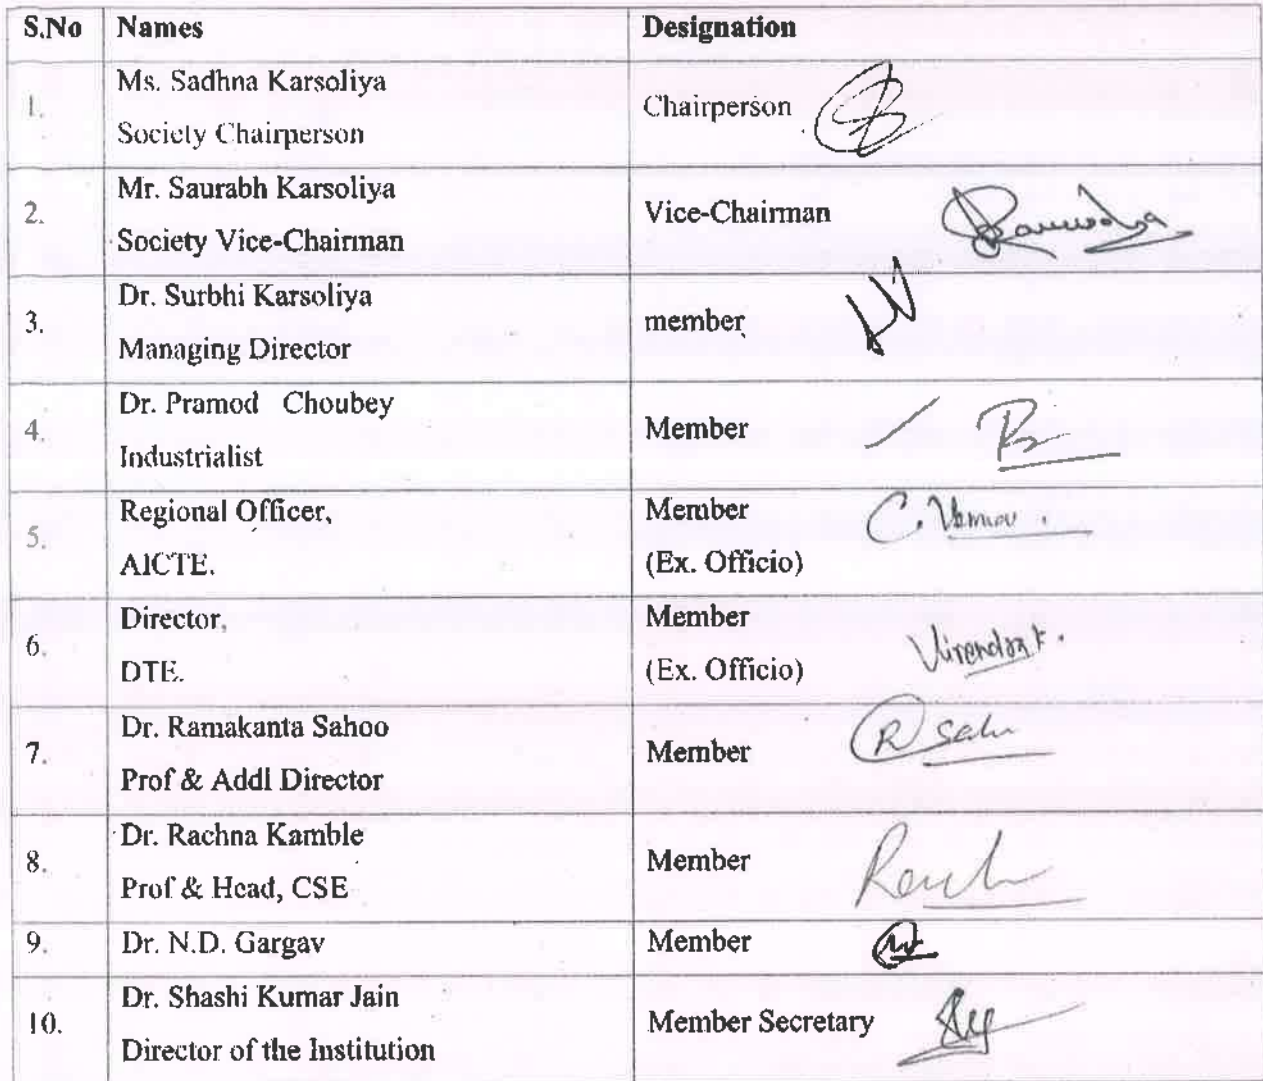 S.No Names Designation
1. Ms. Sadhna Karsoliya
Society Chairperson
Chairperson
2. Mr. Saurabh Karsoliya
Society Vice-Chairman
Vice-Chairman
3. Dr. Surbhi Karsoliya
Managing Director
member
4. Dr. Pramod Choubey
Industrialist
Member
5. Regional Officer,
AICTE.
Member
(Ex. Officio)
C. Verma .
6. Director,
DTE.
Member
(Ex. Officio)
7. Dr. Ramakanta Sahoo
Prof & Addl Director
Member
8. Dr. Rachna Kamble
Prof & Head, CSE
Member
9. Dr. N.D. Gargav
Member
10. Dr. Shashi Kumar Jain
Director of the Institution
Member Secretary